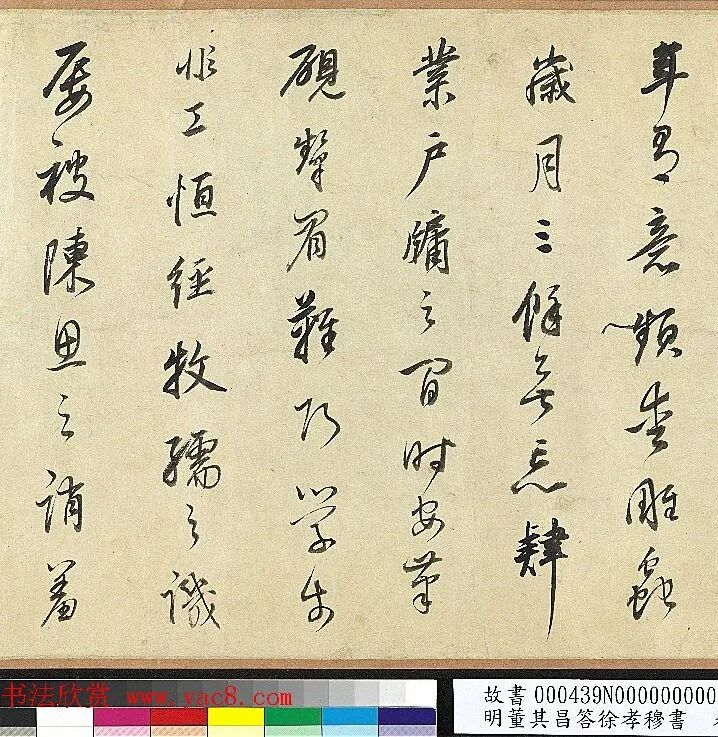 年有意頻愛雕蟲
歲月三餘無忘肄
業戶牖之間時安筆
硯顰眉難巧學步
非工恒經牧孺之譏
屢被陳思之誚羞
书法欣赏 www.yac8.com
故書 000439N000000000
明董其昌答徐孝穆書